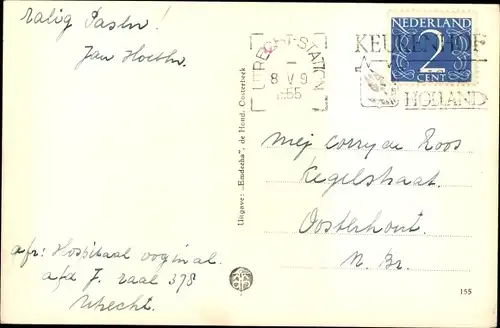 Zalig Pasen!
Jan
UTRECHT-STATION
8 V 9
1955
KEUKENHOF
HOLLAND
NEDERLAND
2
CENT
Uitgave: „Emdeeha", de Hond, Oosterbeek
Mej Corry de Roos
Kegelstraat.
Oosterhout.
N. Br.
afz: Hospitaal
afd J. zaal 378
Utrecht.
155